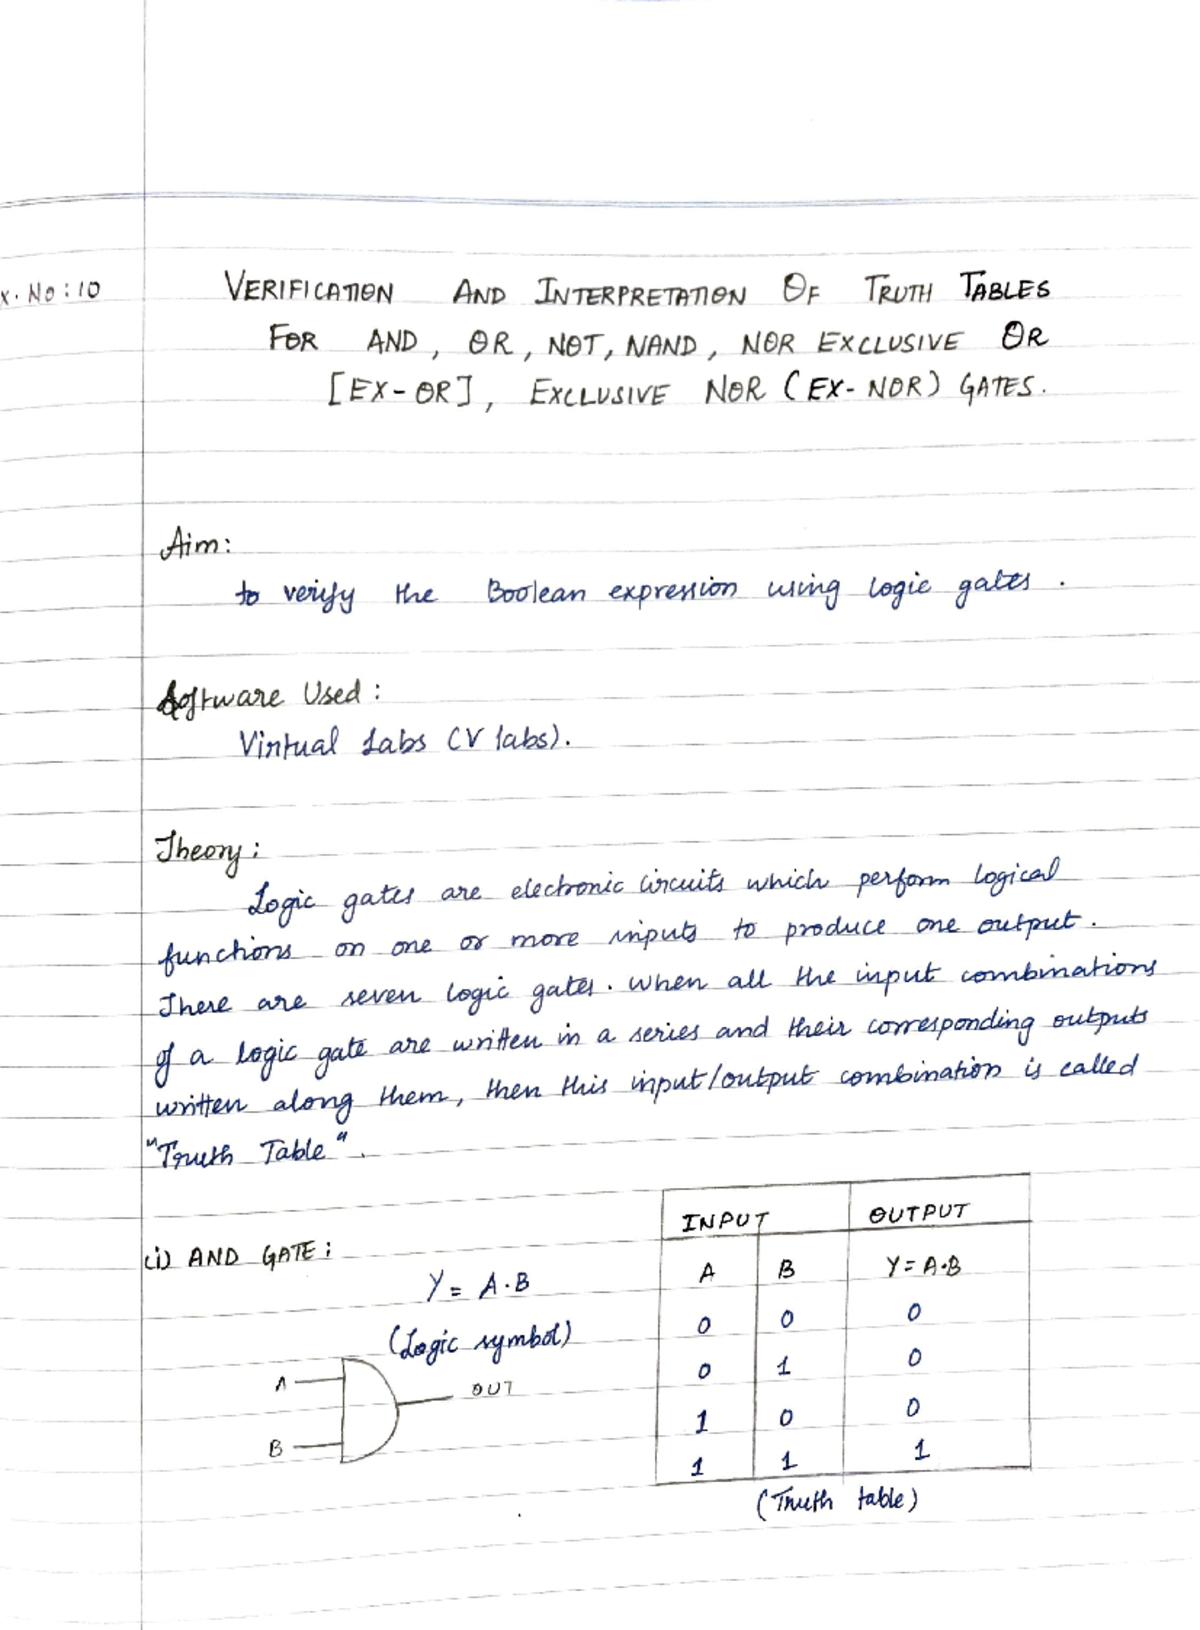 x. No : 10
VERIFICATION AND INTERPRETATION OF TRUTH TABLES
FOR AND, OR, NOT, NAND, NOR EXCLUSIVE OR
[EX-OR], EXCLUSIVE NOR (EX-NOR) GATES.
Aim:
to verify the Boolean expression using logic gates.
Software Used :
Virtual Labs (V labs).
Theory :
Logic gates are electronic circuits which perform logical
functions on one or more inputs to produce one output.
There are seven logic gates. When all the input combinations
of a logic gate are written in a series and their corresponding outputs
written along them, then this input/output combination is called
"Truth Table".
(i) AND GATE :
Y = A·B
(Logic symbol)
A
B
OUT
INPUT OUTPUT
A B Y = A·B
0 0 0
0 1 0
1 0 0
1 1 1
(Truth table)